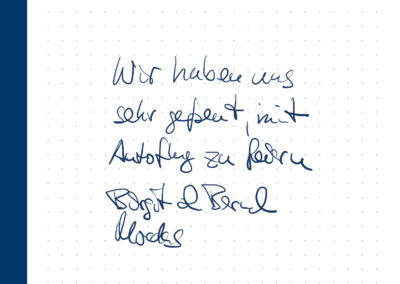 Wir haben uns
sehr gefreut, mit
Autoflug zu feiern
Birgit & Bernd